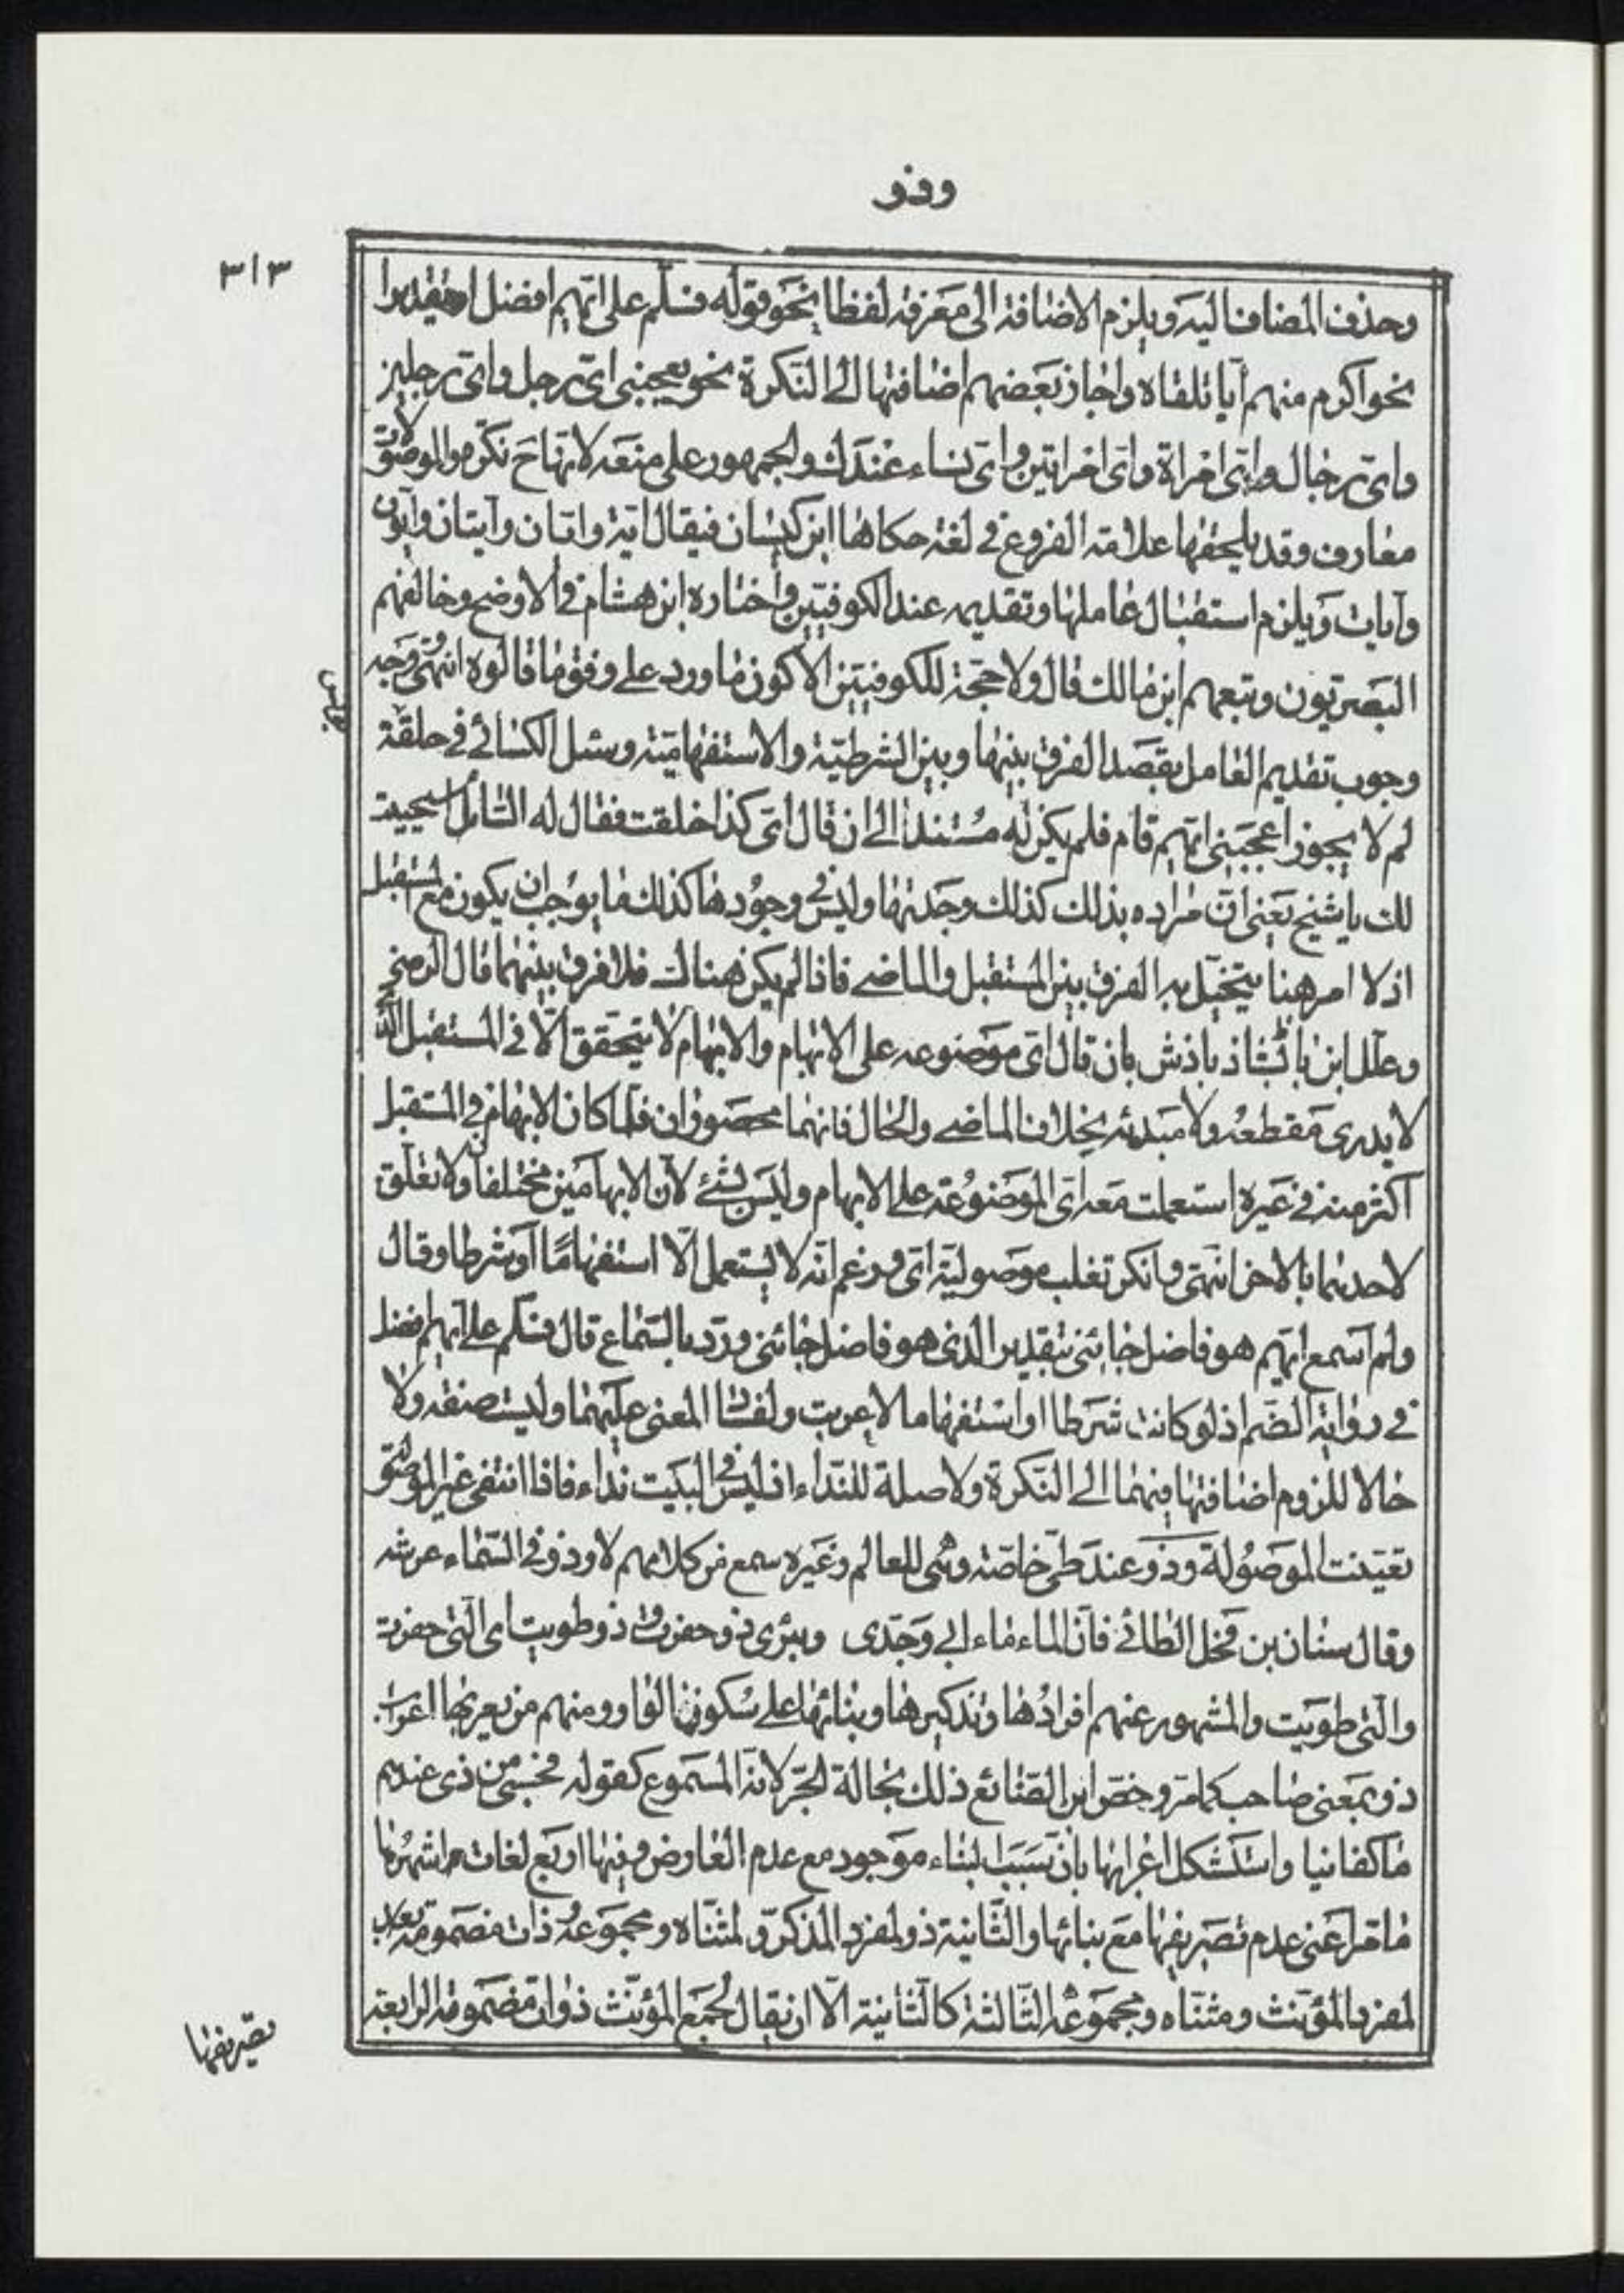 وذو
٣١٣
وحذف المضاف اليه ويلزم الاضافة الى معرفة لفظا نحو قوله فسلّم على ايّهم افضل او تقديرا
نحو اكرم منهم أيا تلقاه واجاز بعضهم اضافتها الى النّكرة نحو يعجبنى اىّ رجل واىّ رجلين
واىّ رجال واىّ امراة واىّ امراتين واىّ نساء عندك والجمهور على منعه لانّها ح نكرة والموصولات
معارف وقد يلحقها علامة الفروع فى لغة حكاها ابن كيسان فيقال ايّة وايّان وأيّتان وأيّون
وأيّات ويلزم استقبال عاملها وتقديمه عند الكوفيّين واختاره ابن هشام فى الاوضح وخالفهم
البصريّون وتبعهم ابن مالك قال ولا حجّة للكوفيّين الّا كون ما ورد على وفق ما قالوه انتهى وجه
وجوب تقديم العامل بقصد الفرق بينها وبين الشرطيّة والاستفهاميّة وسئل الكسائى فى حلقة
لم لا يجوز اعجبنى ايّهم قام فلم يكن له مستندا الى ان قال اىّ كذا خلقت فقال له السّائل استحييت
لك يا شيخ يعنى انّ مراده بذلك كذلك وجدتها وليس فى وجودها كذلك ما يوجب ان يكون مع المستقبل
اذ لا امر هنا يتخيّل به الفرق بين المستقبل والماضى فاذا لم يكن هناك فلا فرق بينهما قال الرضى
وعلّل ابن بابشاذ باذش بان قال اىّ موضوعه على الابهام والابهام لا يتحقق الّا فى المستقبل الّذى
لا يدرى مقطعه ولا مبدئه بخلاف الماضى والحال فانهما محصوران فلما كان الابهام فى المستقبل
اكثر منه فى غيره استعملت معه اىّ الموضوعة على الابهام وليس بشئ لان الابهامين مختلفان ولا تعلّق
لاحدهما بالاخر انتهى وانكر تغلب موصوليّة اىّ وزعم انّه لا يستعمل الّا استفهامًا أو شرطا وقال
ولم أسمع ايّهم هو فاضل جائنى بتقدير الذى هو فاضل جائنى وردّ بالسّماع قال فسلّم على ايّهم افضل
فى رواية الضّم اذ لو كانت شرطا او استفهاما لاعربت ولفسد المعنى عليهما وليست صفة ولا
حالا للزوم اضافتها فيهما الى النّكرة ولا صلة للنّداء اذ ليس فى البيت نداء فاذا انتفى غير الموصولة
تعيّنت الموصولة وذو عند طىّ خاصّة وهى للعالم وغيره سمع من كلامهم لا وذو فى السّماء عرشه
وقال سنان بن فحل الطائى فانّ الماء ماء ابى وجدّى وبئرى ذو حفرت وذو طويت اى الّتى حفرت
والّتى طويت والمشهور عنهم افرادُها وتذكيرها وبنائها على سكون الواو ومنهم من يعربها اعراب
ذو بمعنى صاحب كما مرّ وخصّ ابن الضائع ذلك بحالة الجرّ لانه المسموع كقوله فحسبى من ذى عندهم
ما كفانيا واستشكل اعرابها بانّ سبب البناء موجود مع عدم المعارض وفيها اربع لغات اشهرها
ما مرّ اعنى عدم تصريفها مع بنائها والثّانية ذو لمفرد المذكّر ومثنّاه ومجموعه ذات مضمومة
لمفرد المؤنث ومثنّاه ومجموعه الثّالثة كالثّانية الّا ان يقال لجمع المؤنّث ذوات مضمومة الرابعة
تصريفها